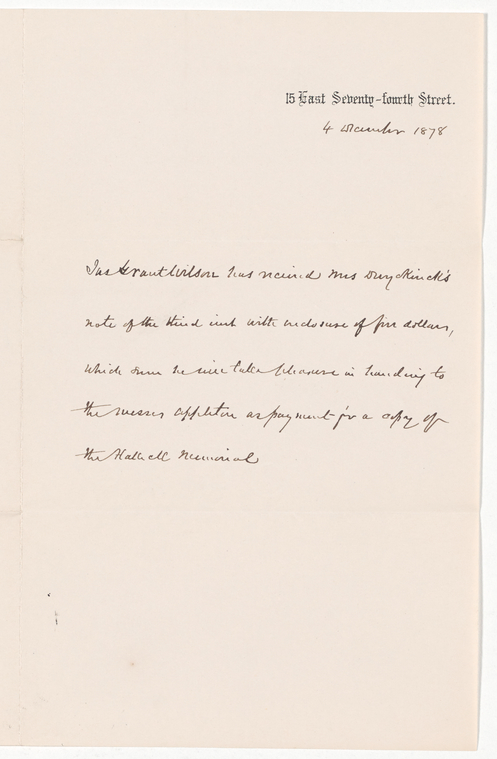 15 East Seventy-fourth Street.
4 December 1878
Jas Grant Wilson has received Mrs Duyckinck's
note of the third inst with enclosure of five dollars,
which sum he will take pleasure in handing to
the Messrs Appleton as payment for a copy of
the Halleck Memorial